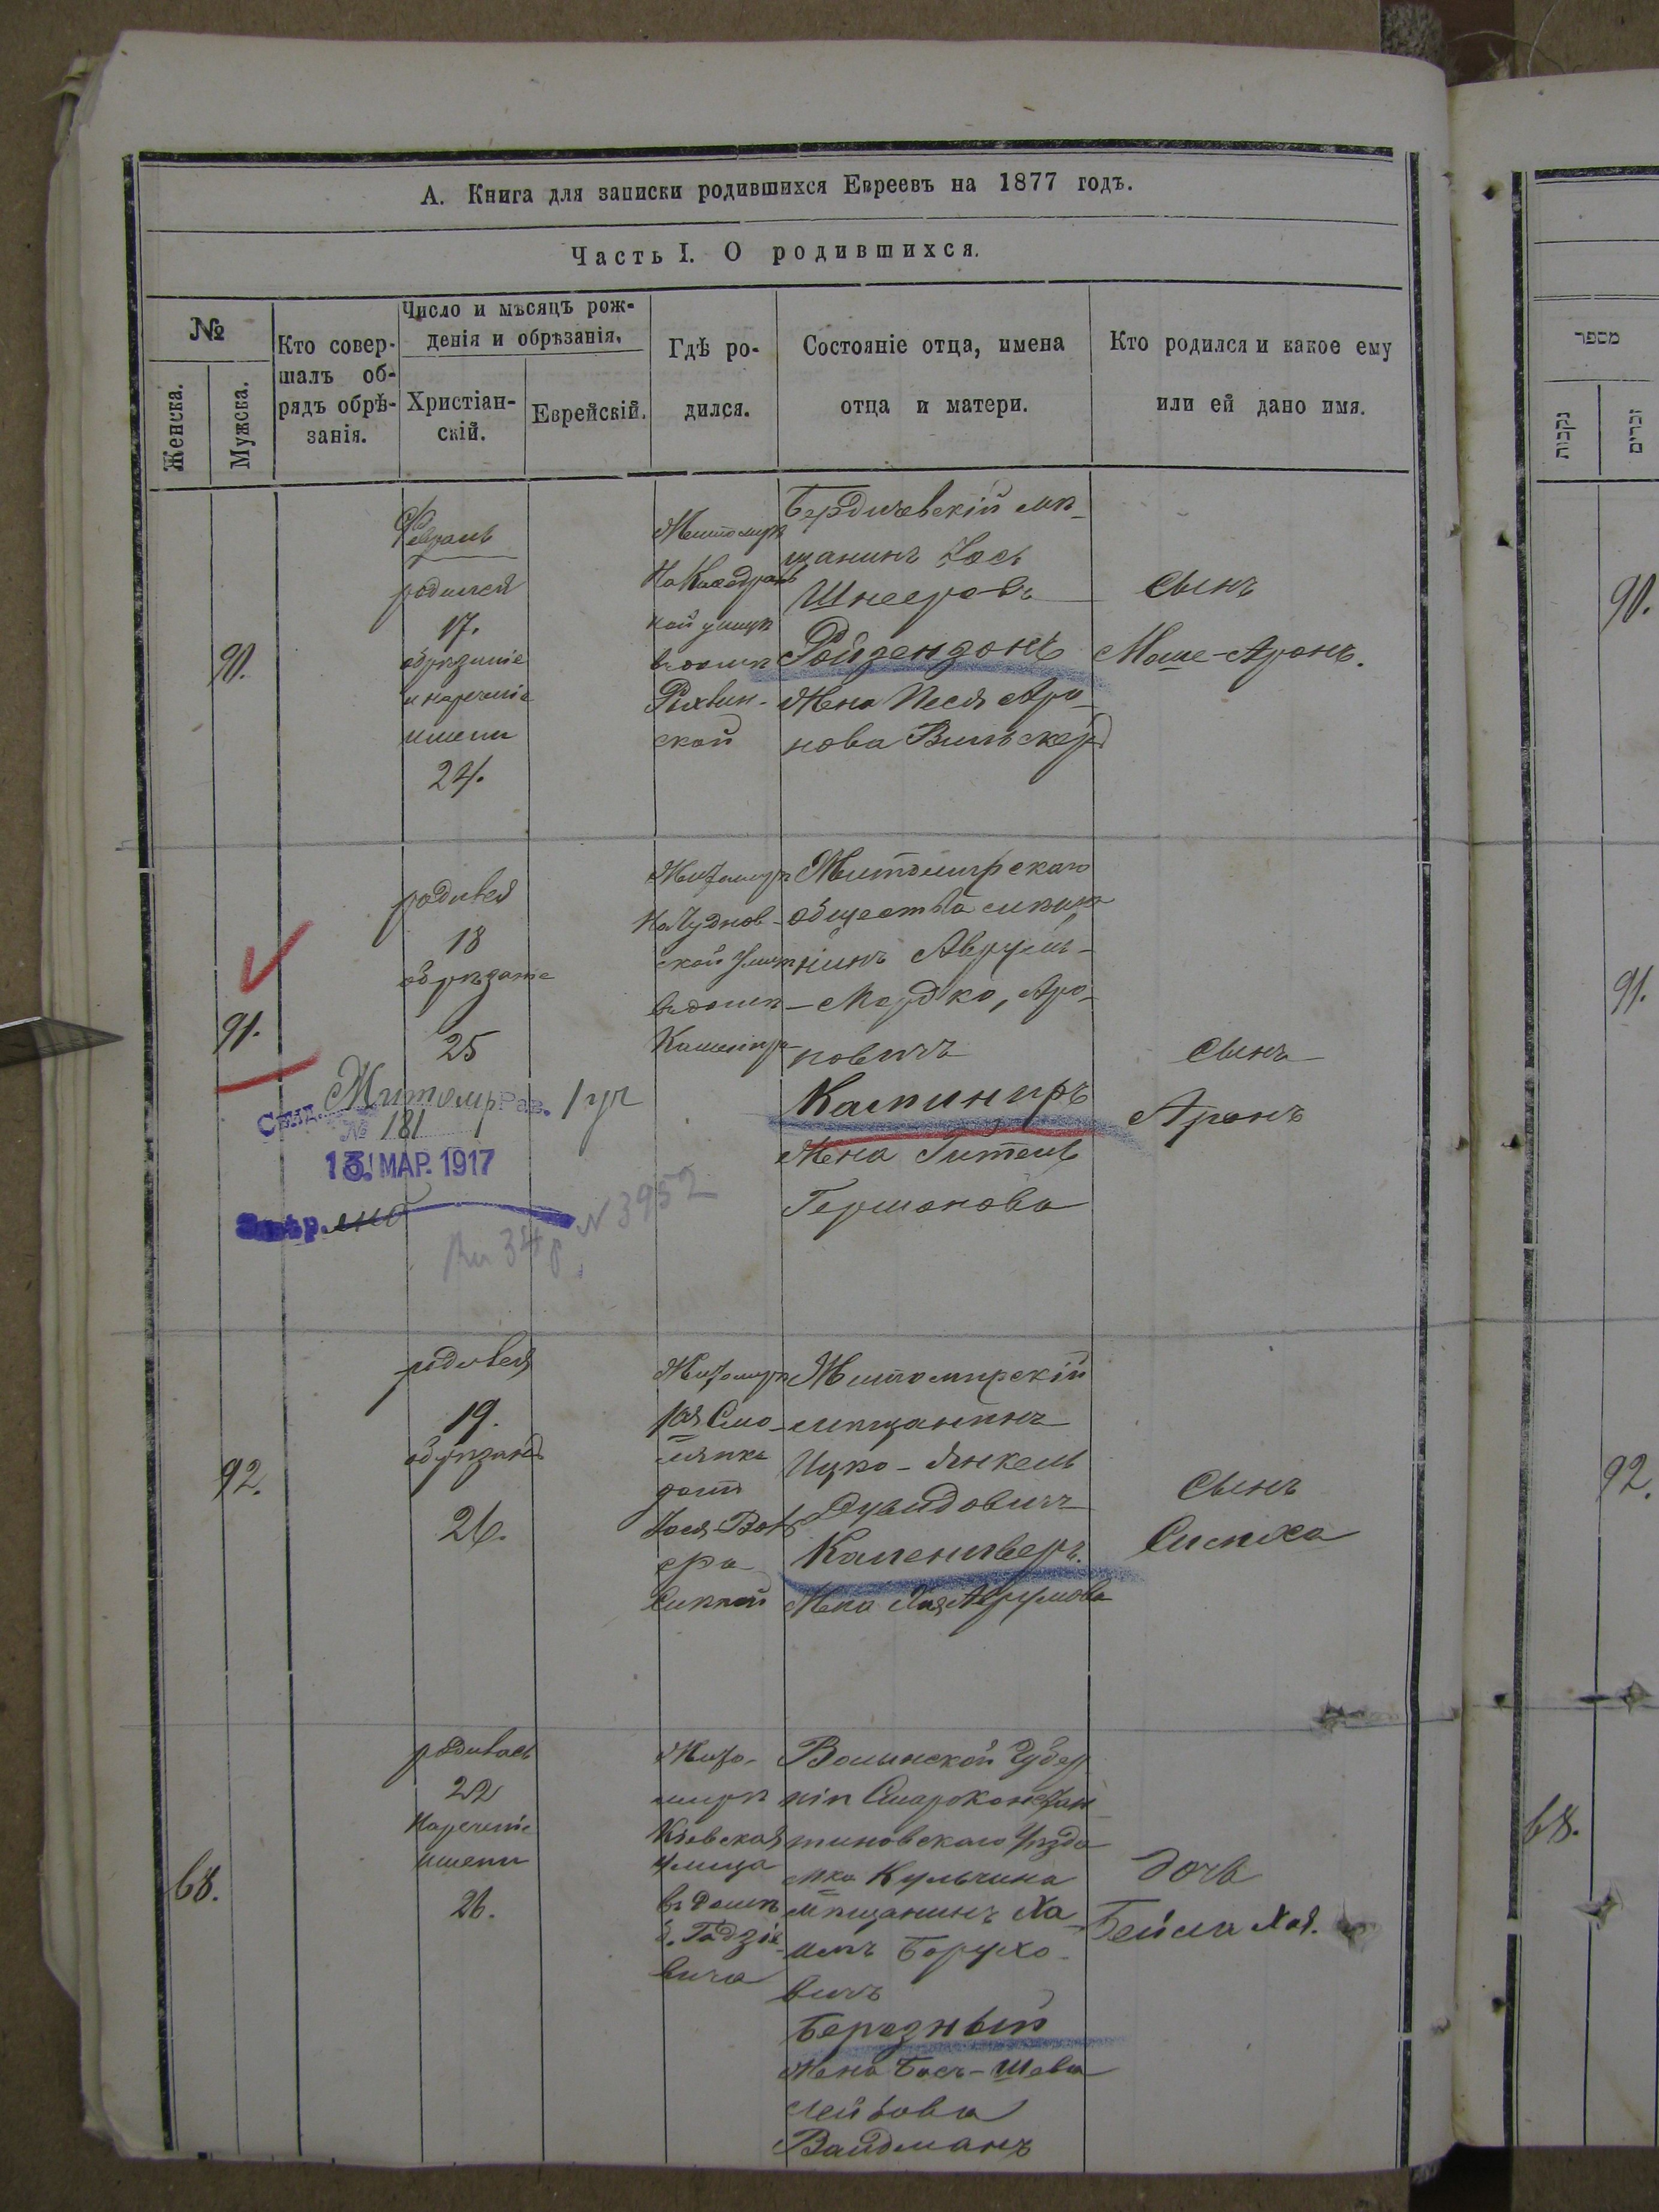 А. Книга для записки родившихся Евреевъ на 1877 годъ.
Часть I. О родившихся.
№
Женска.
Мужска.
Кто совер-
шалъ об-
рядъ обрѣ-
занія.
Число и мѣсяцъ рож-
денія и обрѣзанія.
Христіан-
скій.
Еврейскій.
Гдѣ ро-
дился.
Состояніе отца, имена
отца и матери.
Кто родился и какое ему
или ей дано имя.
90.
Февраль
родился
17.
обрѣзаніе
и нареченіе
имени
24.
Житомиръ
На Каѳедраль
ной улицѣ
въ домѣ
Рыхвин-
ской
Бердичевскій мѣ-
щанинъ Іось
Шнееровъ
Ройзендонъ
Жена Песя Аро-
нова Вильскеръ
Сынъ
Моше-Аронъ.
91.
родился
18
обрѣзаніе
25
Житомиръ
На Чуднов-
ской улицѣ
въ домѣ
Житомирскаго
общества мѣща
нинъ Аврумъ-
Мордко, Аро-
новичъ
Каминиръ
Жена Гитель
Гершонова
Сынъ
Аронъ
Свид. Житомир Рав.
№ 181
13. МАР. 1917
№ 3952
92.
родился
19.
обрѣзаніе
26.
Житомиръ
1ая Смо-
лянка
домъ
Житомирскій
мѣщанинъ
Ицко-Янкель
Дувидовичъ
Жена Хая Аврумова
Сынъ
Симха
68.
родилась
22
Нареченіе
имени
26.
Жито-
миръ
Кіевская
улица
въ домѣ
б. Гадзіе-
вича
Волынской Губер
ніи Староконстан
тиновскаго Уѣзда
мка Кульчина
мѣщанинъ Ха-
имъ Борухо-
вичъ
Березный
Жена Бась-Шева
Лейбова
Вайдманъ
дочь
Бейла Хая.
מספר
נקבות
זכרים
90.
91.
92.
68.